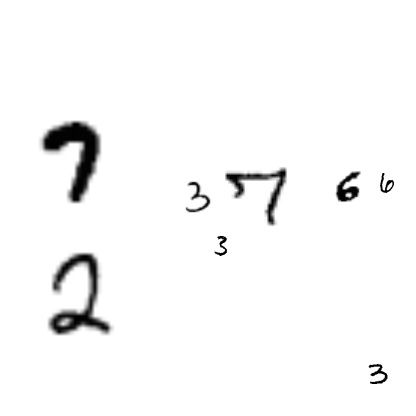 7
3 7 6 6
3
2
3